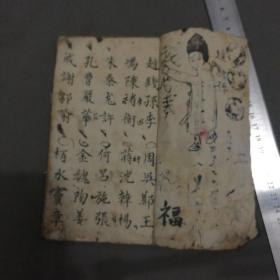 福
趙錢孫李周吳鄭王
馮陳褚衛蔣沈韓楊
朱秦尤許何呂施張
孔曹嚴華金魏陶姜
戚謝鄒喻柏水竇章